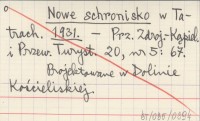 Nowe schronisko w Ta-
trach. 1931. – Prz. Zdroj-Kąpiel.
i Przew. Turyst. 20, nr 5: 67.
Projektowane w Dolinie
Kościeliskiej.